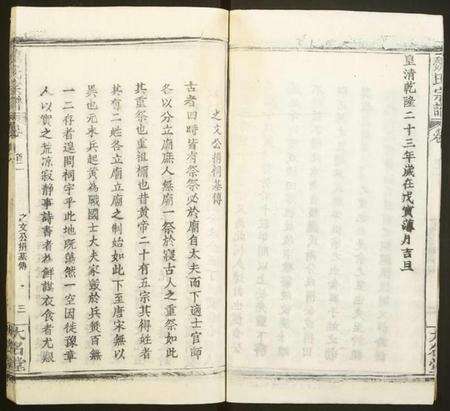 皇清乾隆二十三年歲在戊寅蒲月吉旦
氏宗譜
卷
之文公捐祠基傳
古者四時皆有祭祭必於廟自大夫而下適士官師
各以分立廟庶人無廟一祭於寢古人之重祭如此
其重祭也重祖禰也昔黃帝二十有五宗其得姓者
其有二姓各立廟立廟之制始如此下至唐宋無以
異也元末兵起黃為戰國士大夫家毀於兵燹百無
一二存者遑問祠宇乎此地既蕩然一空因徙豫章
人以實之荒凉寂靜事詩書者尠謀衣食者尤艱
之文公捐基傳
三
大名堂